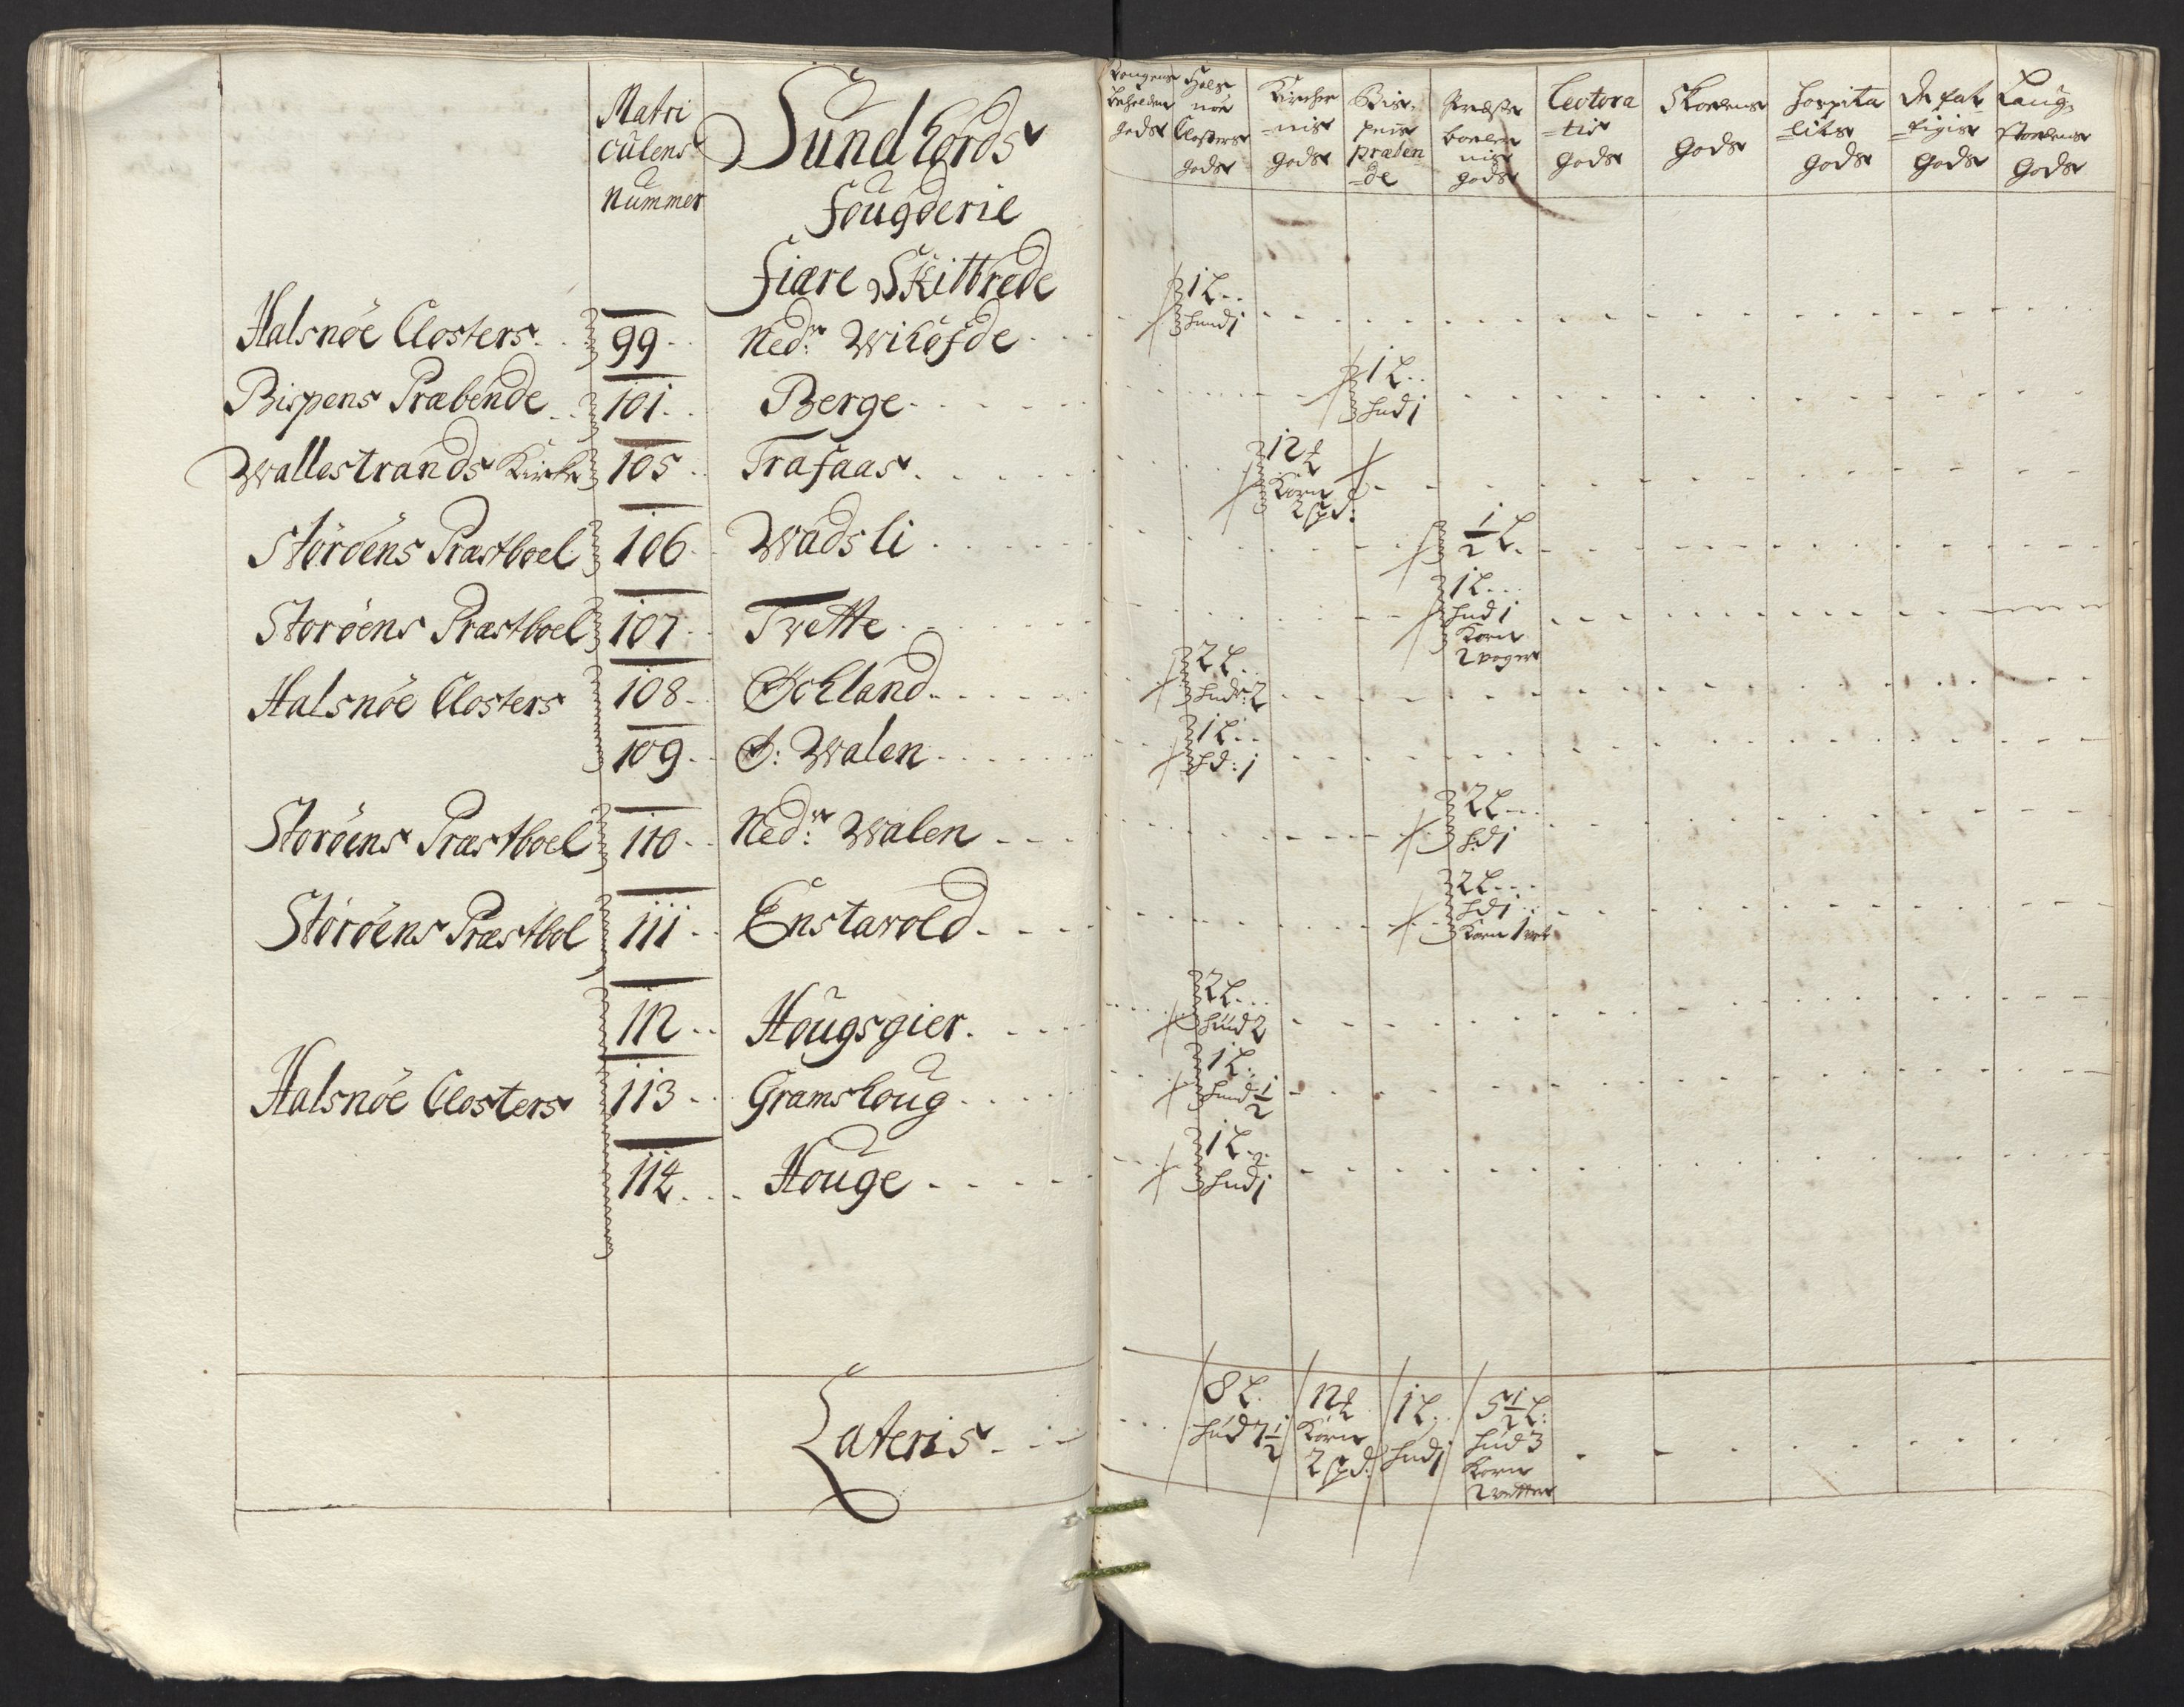 Matri
culens
Nummer
Sundhords
Fougderie
Fiære Skibbrede
Kongens
beholdne
gods
Hals
nöe
Closters
gods
Kircher
nis
gods
Bis-
pens
præben
de
Præste
bolle
nis
gods
Lectora
tis
gods
Skolens
gods
Hospita
lits
gods
gods
Laug
stolens
gods
Halsnöe Closters 99 Ned: Wihöfde 1 L Hud 1
Bispens Præbende 101 Berge 1 L Hud 1
Wallestrands Kirke 105 Trafaas 12
Korn
2 spd:
Storöens Præstboel 106 Wadsli 1/2 L.
Storöens Præstboel 107 Tvette 1 L
Hud 1
Korn
2 voger
Halsnöe Closters 108 Öchland 2 L Hud: 2
109 Ö: Walen 1 L Hd: 1
Storöens Præstboel 110 Ned: Walen 2 L Hd 1
Storöens Præstbol 111 Enstavold 2 L
Hd 1
Korn 1 vet
112 Hougsgier 2 L Hud 2
Halsnöe Closters 113 Gramshoug 1 L: Hud 1/2
114 Houge 1 L Hud 1
Lateris
8 L.
Hud 7 1/2
12
Korn
2 spd:
1 L.
Hud 1
5 1/2 L:
Hud 3
Korn
2 vetter